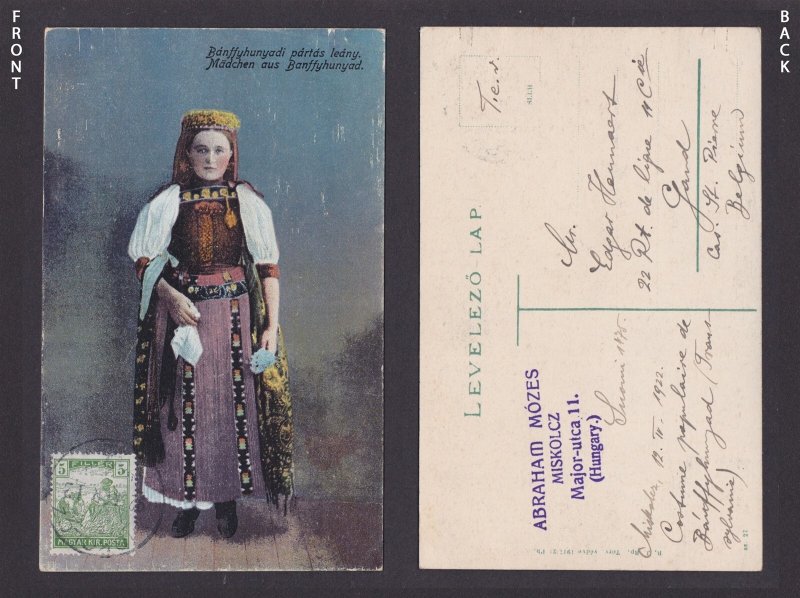 FRONT
Bánffyhunyadi pártás leány.
Mädchen aus Banffyhunyad.
5 FILLÉR 5
MAGYAR KIR. POSTA
BACK
T.c.v.
LEVELEZŐ LAP.
Mr.
Edgar Hennaert
22 Rt. de ligne 11 Cie
Gand
Cas. St. Pierre
Belgium
ABRAHAM MÓZES
MISKOLCZ
Major-utca 11.
(Hungary.)
Miskolcz, 12. IV. 1922.
Costume populaire de
Bánffyhunyad (Trans-
sylvanie)